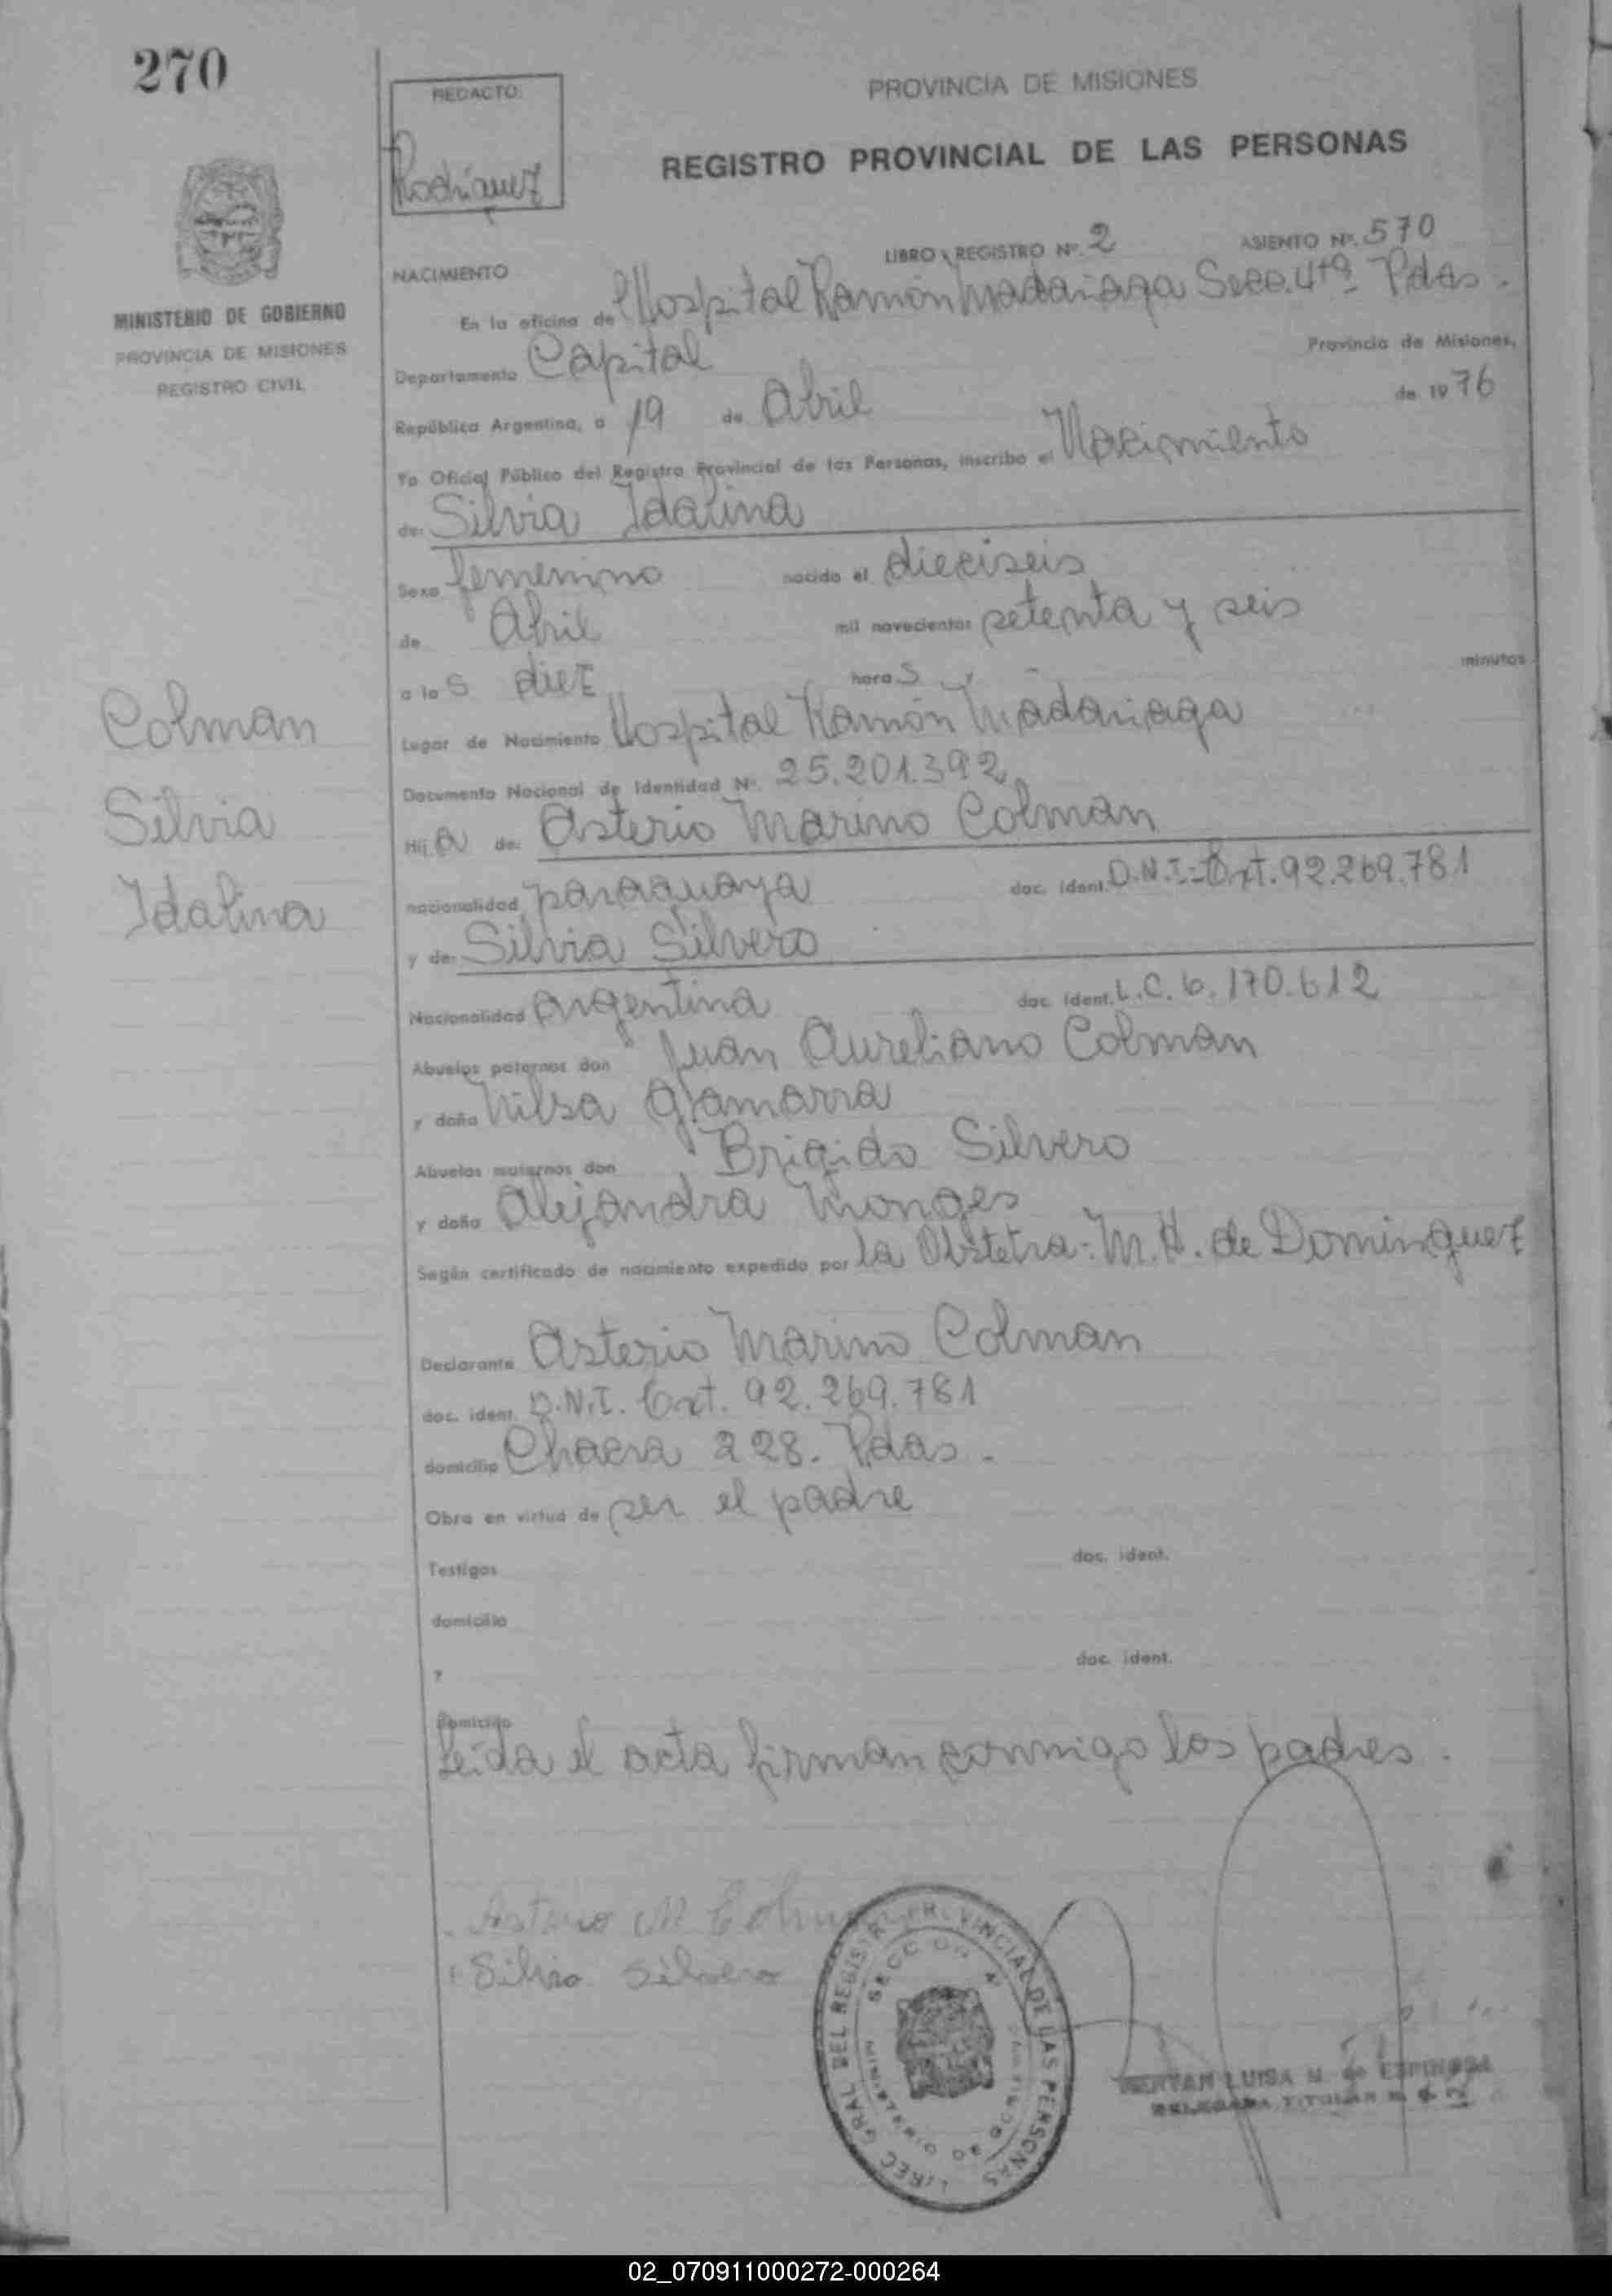 270
REDACTO:
Rodríguez
PROVINCIA DE MISIONES
REGISTRO PROVINCIAL DE LAS PERSONAS
MINISTERIO DE GOBIERNO
PROVINCIA DE MISIONES
REGISTRO CIVIL
LIBRO y REGISTRO Nº. 2 ASIENTO Nº. 570
NACIMIENTO
En la oficina de Hospital Ramón Madariaga Secc. 4ta Pdas.
Departamento Capital Provincia de Misiones,
República Argentina, a 19 de Abril de 1976
Yo Oficial Público del Registro Provincial de las Personas, inscribo el Nacimiento
de: Silvia Idalina
Sexo femenino nacido el dieciseis
de Abril mil novecientos setenta y seis
a las diez horas y minutos
Lugar de Nacimiento Hospital Ramón Madariaga
Documento Nacional de Identidad Nº. 25.201.392
Hija de: Asterio Marino Colman
nacionalidad paraguaya doc. ident. D.N.I. Ext. 92.269.781
y de: Silvia Silvero
Nacionalidad Argentina doc. ident. L.C. 6.170.612
Abuelos paternos don Juan Aureliano Colman
y doña Nilsa Gamarra
Abuelos maternos don Brigido Silvero
y doña Alejandra Monges
Según certificado de nacimiento expedido por la Obstetra: M.H. de Dominguez
Declarante Asterio Marino Colman
doc. ident. D.N.I. Ext. 92.269.781
domicilio Chacra 228. Pdas.
Obra en virtud de ser el padre
Testigos doc. ident.
domicilio
y doc. ident.
Domicilio
Leida el acta firman conmigo los padres.
Colman
Silvia
Idalina
Asterio M Colman
Silvia Silvero
DIREC. GRAL DEL REGISTRO PROVINCIAL DE LAS PERSONAS
MINISTERIO DE GOBIERNO
LUISA M. de ESPINOSA
DELEGADA TITULAR
02_070911000272-000264